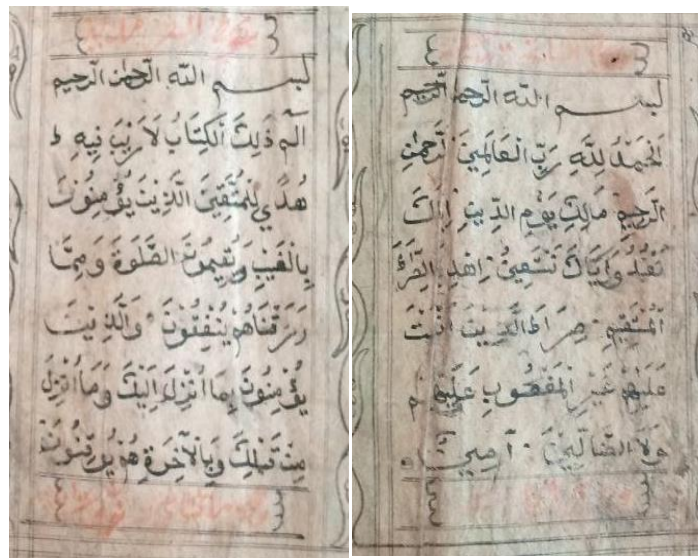 بسم الله الرحمن الرحيم
الحمد لله رب العالمين الرحمن
الرحيم مالك يوم الدين اياك
نعبد واياك نستعين اهد الصرا
المستقيم صراط الذين انعت
عليهم غير المغضوب عليهم
ولا الضالين امين
بسم الله الرحمن الرحيم
الم ذلك الكتاب لا ريب فيه ط
هدي للمتقين الذين يؤمنون
بالغيب ويقيمون الصلوة ومما
رزقناهم ينفقون والذين
يؤمنون بما أنزل اليك وما أنزل
من قبلك وبالآخرة هم يوقنون